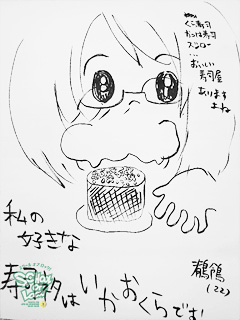 くら寿司
かっぱ寿司
スシロー
…
おいしい
寿司屋
あります
よね
私の
好きな
寿司ネタは いかおくらです!
鶺鴒
(22)